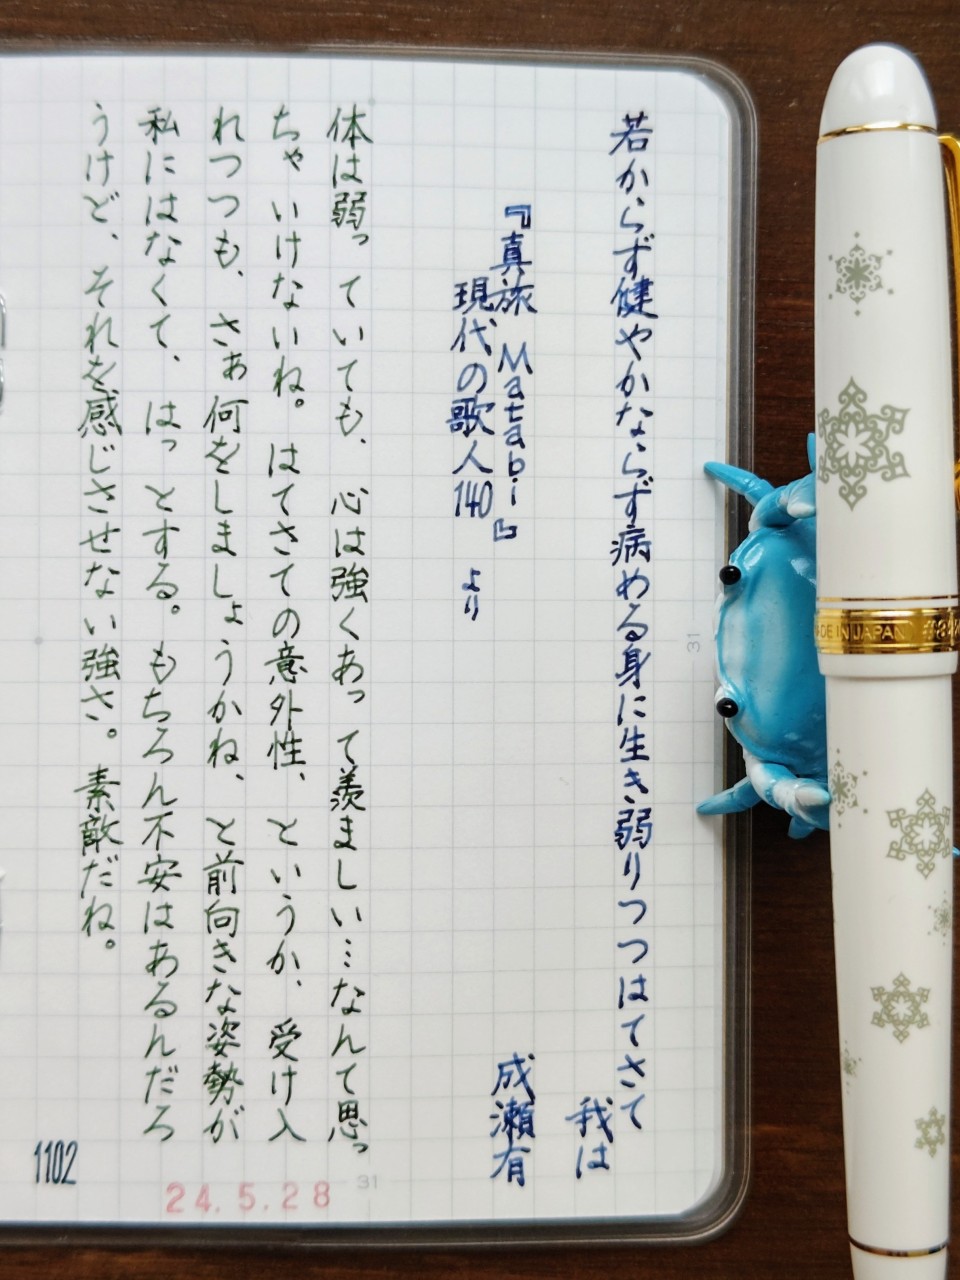 若からず健やかならず病める身に生き弱りつつはてさて
我は
成瀬有
『真旅 Matabi』
現代の歌人140 より
体は弱っていても、心は強くあって羨ましい…なんて思っ
ちゃいけないね。はてさての意外性、というか、受け入
れつつも、さぁ何をしましょうかね、と前向きな姿勢が
私にはなくて、はっとする。もちろん不安はあるんだろ
うけど、それを感じさせない強さ。素敵だね。
1102
24.5.28
31
31
MADE IN JAPAN